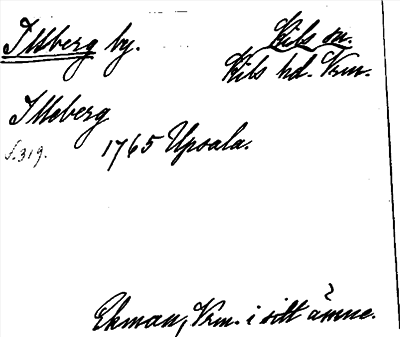 Illberg by. Kils sn.
Kils hd. Vrm.
Illeberg
s. 319. 1765 Upsala.
Ekman, Vrm. i sitt ämne.